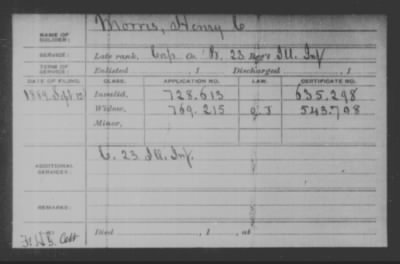 NAME OF SOLDIER: Morris, Henry C
SERVICE: Late rank, Corp Co B. 23 Reg't Ill. Inf
TERM OF SERVICE: Enlisted , 1 Discharged , 1
DATE OF FILING. CLASS. APPLICATION NO. LAW. CERTIFICATE NO.
1889. Sept Invalid, 728.613 635.298
Widow, 769.215 J 543.798
Minor,
ADDITIONAL SERVICES: C. 23 Ill. Inf.
REMARKS:
Died , 1 , at